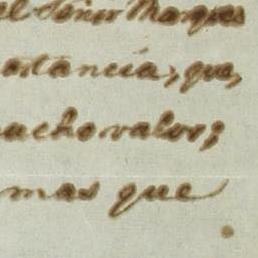 el Señor Marques
stancia, que,
mucho valor;
mas que